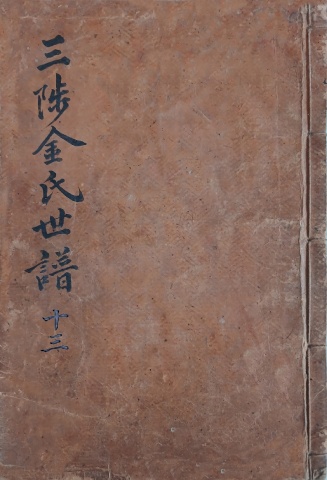 三陟金氏世譜 十三